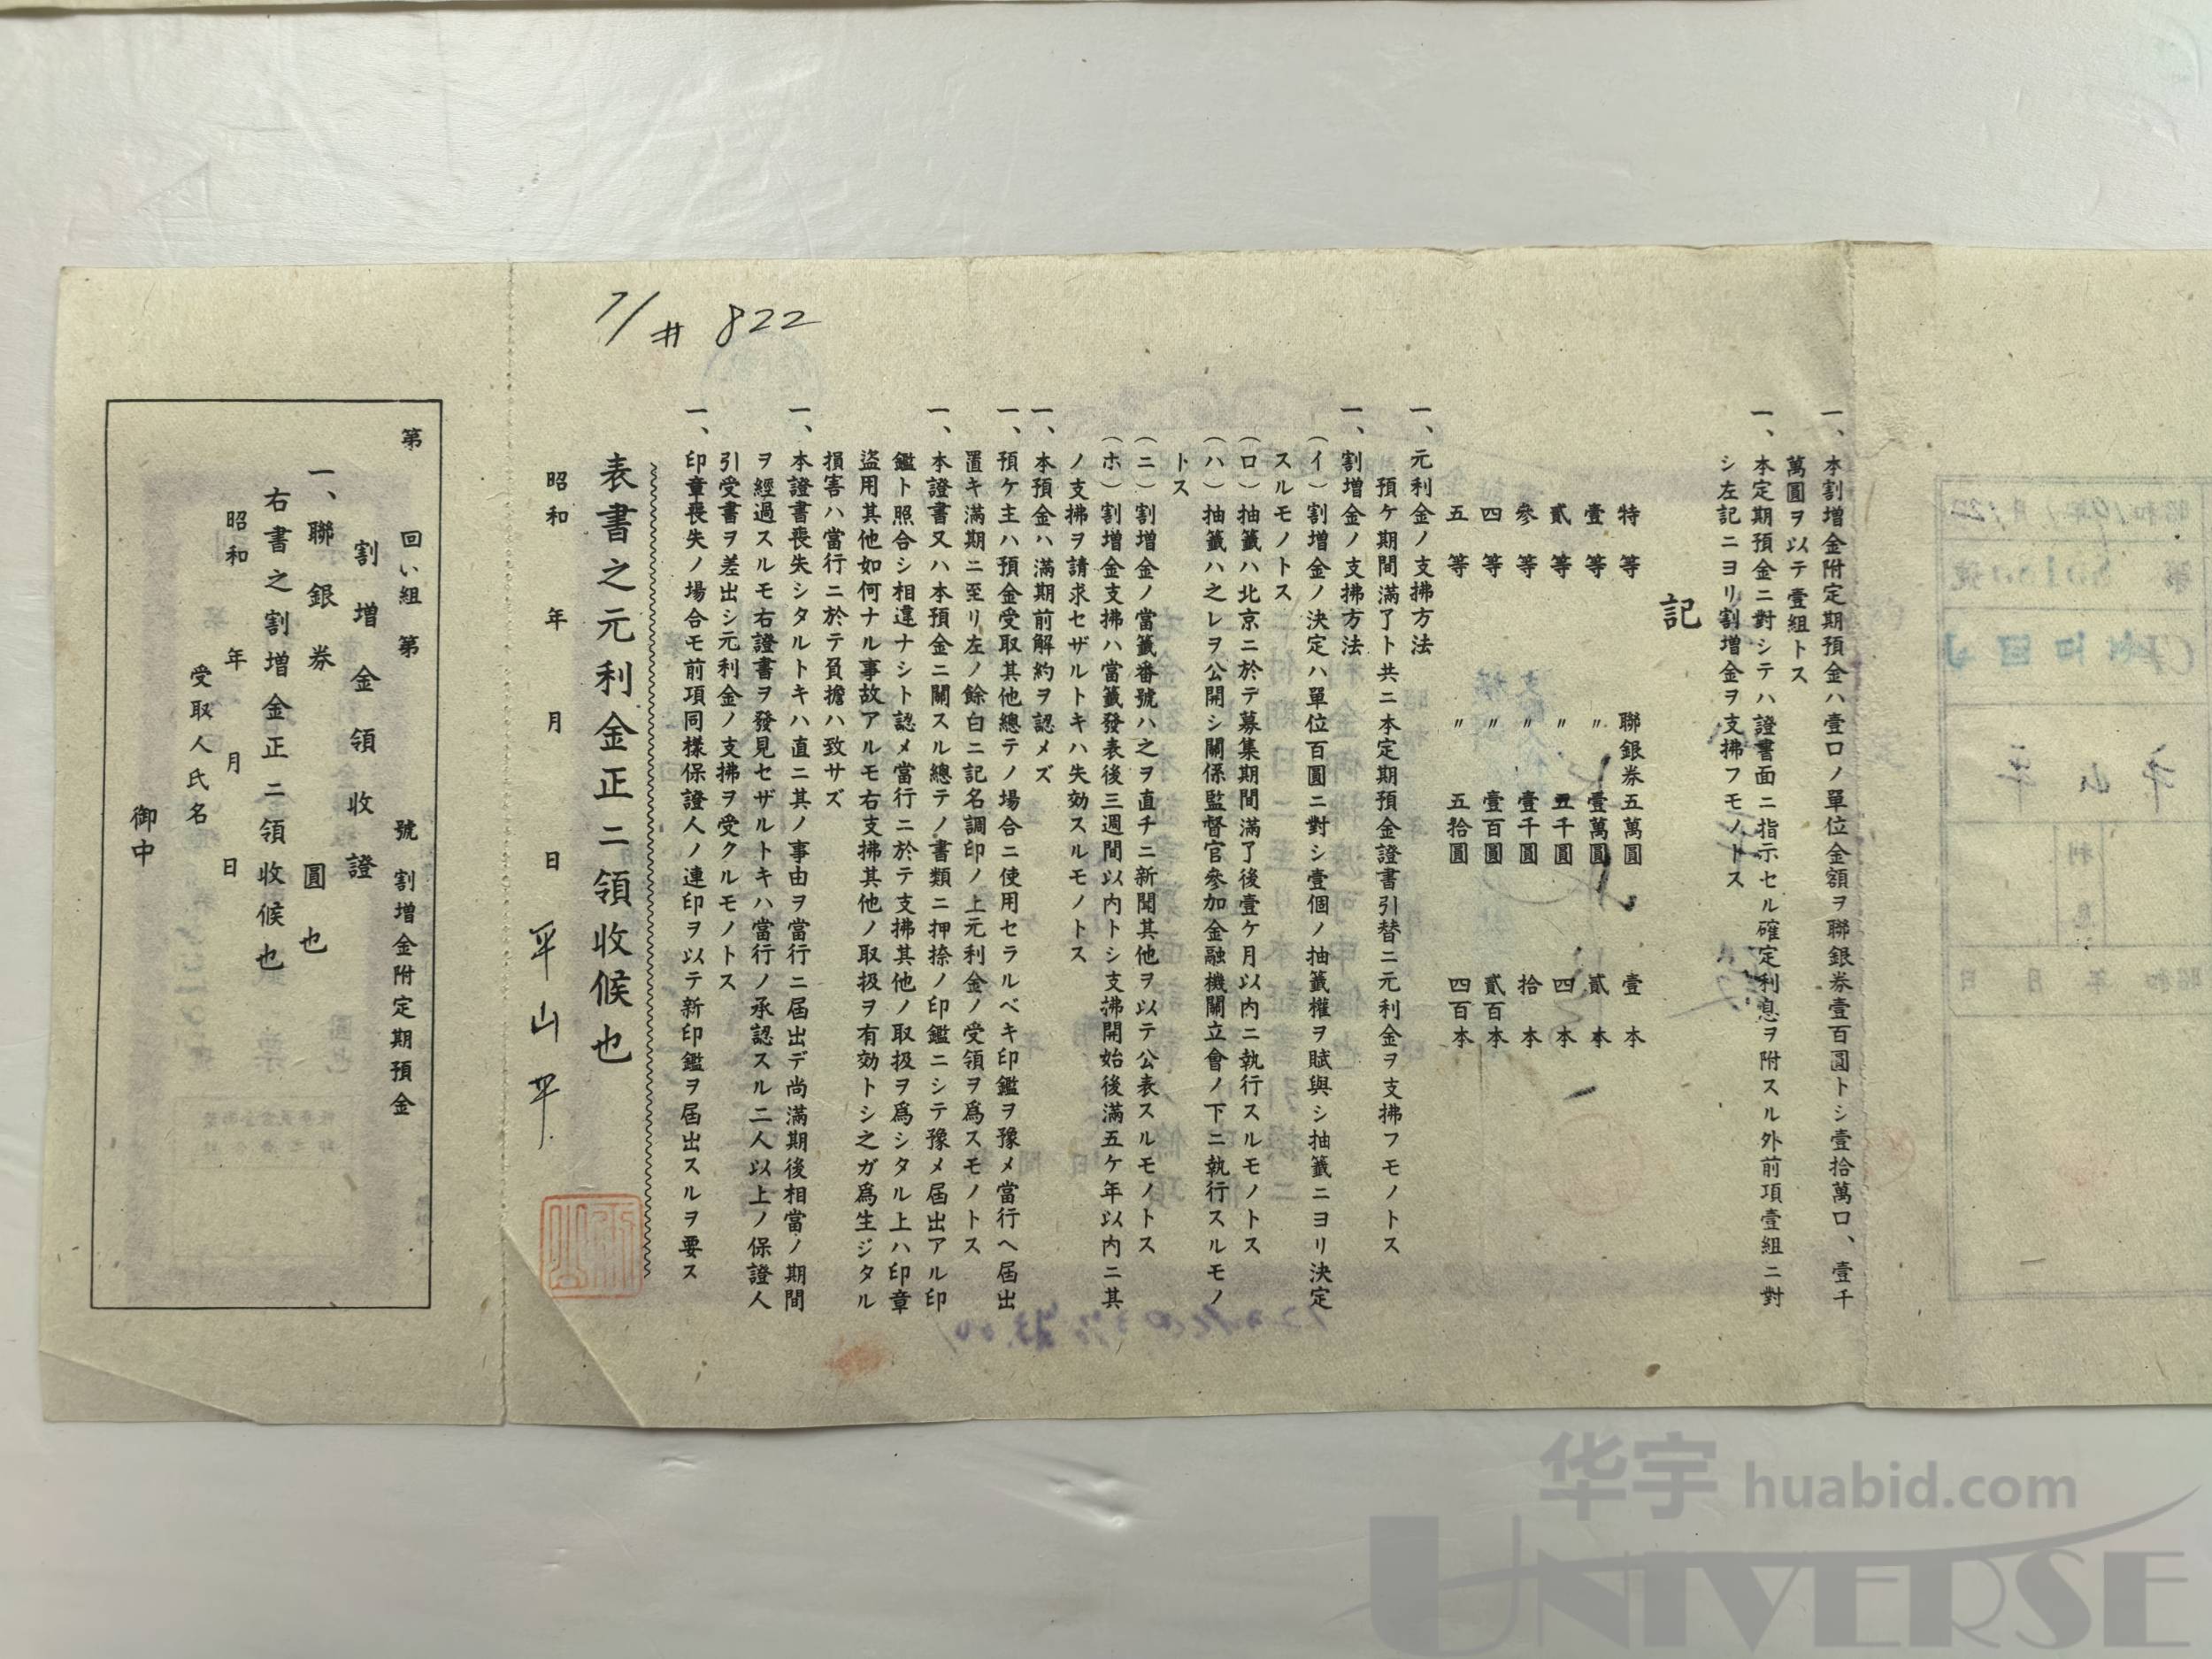 一、本割増金附定期預金ハ壹口ノ單位金額ヲ聯銀券壹百圓トシ壹拾萬口、壹千
萬圓ヲ以テ壹組トス
一、本定期預金ニ對シテハ證書面ニ指示セル確定利息ヲ附スル外前項壹組ニ對
シ左記ニヨリ割増金ヲ支拂フモノトス
記
特等 聯銀券五萬圓 壹本
壹等 〃 壹萬圓 貳本
貳等 〃 五千圓 四本
參等 〃 壹千圓 拾本
四等 〃 壹百圓 貳百本
五等 〃 五拾圓 四百本
一、元利金ノ支拂方法
預ケ期間滿了ト共ニ本定期預金證書引替ニ元利金ヲ支拂フモノトス
一、割増金ノ支拂方法
(イ)割増金ノ決定ハ單位百圓ニ對シ壹個ノ抽籤權ヲ賦與シ抽籤ニヨリ決定
スルモノトス
(ロ)抽籤ハ北京ニ於テ募集期間滿了後壹ケ月以内ニ執行スルモノトス
(ハ)抽籤ハ之レヲ公開シ關係監督官參加金融機關立會ノ下ニ執行スルモノ
トス
(ニ)割増金ノ當籤番號ハ之ヲ直チニ新聞其他ヲ以テ公表スルモノトス
(ホ)割増金支拂ハ當籤發表後三週間以内トシ支拂開始後滿五ケ年以内ニ其
ノ支拂ヲ請求セザルトキハ失効スルモノトス
一、本預金ハ滿期前解約ヲ認メズ
一、預ケ主ハ預金受取其他總テノ場合ニ使用セラルベキ印鑑ヲ豫メ當行ヘ屆出
置キ滿期ニ至リ左ノ餘白ニ記名調印ノ上元利金ノ受領ヲ爲スモノトス
一、本證書又ハ本預金ニ關スル總テノ書類ニ押捺ノ印鑑ニシテ豫メ屆出アル印
鑑ト照合シ相違ナシト認メ當行ニ於テ支拂其他ノ取扱ヲ爲シタル上ハ印章
盜用其他如何ナル事故アルモ右支拂其他ノ取扱ヲ有効トシ之ガ爲生ジタル
損害ハ當行ニ於テ負擔ハ致サズ
一、本證書喪失シタルトキハ直ニ其ノ事由ヲ當行ニ屆出デ尚滿期後相當ノ期間
ヲ經過スルモ右證書ヲ發見セザルトキハ當行ノ承認スル二人以上ノ保證人
引受書ヲ差出シ元利金ノ支拂ヲ受クルモノトス
一、印章喪失ノ場合モ前項同樣保證人ノ連印ヲ以テ新印鑑ヲ屆出スルヲ要ス
7/# 822
表書之元利金正ニ領收候也
昭和 年 月 日 平山平
第 回い組 第 號 割増金附定期預金
割増金領收證
一、聯銀券 圓也
右書之割増金正ニ領收候也
昭和 年 月 日
受取人氏名
御中
华宇 huabid.com
UNIVERSE